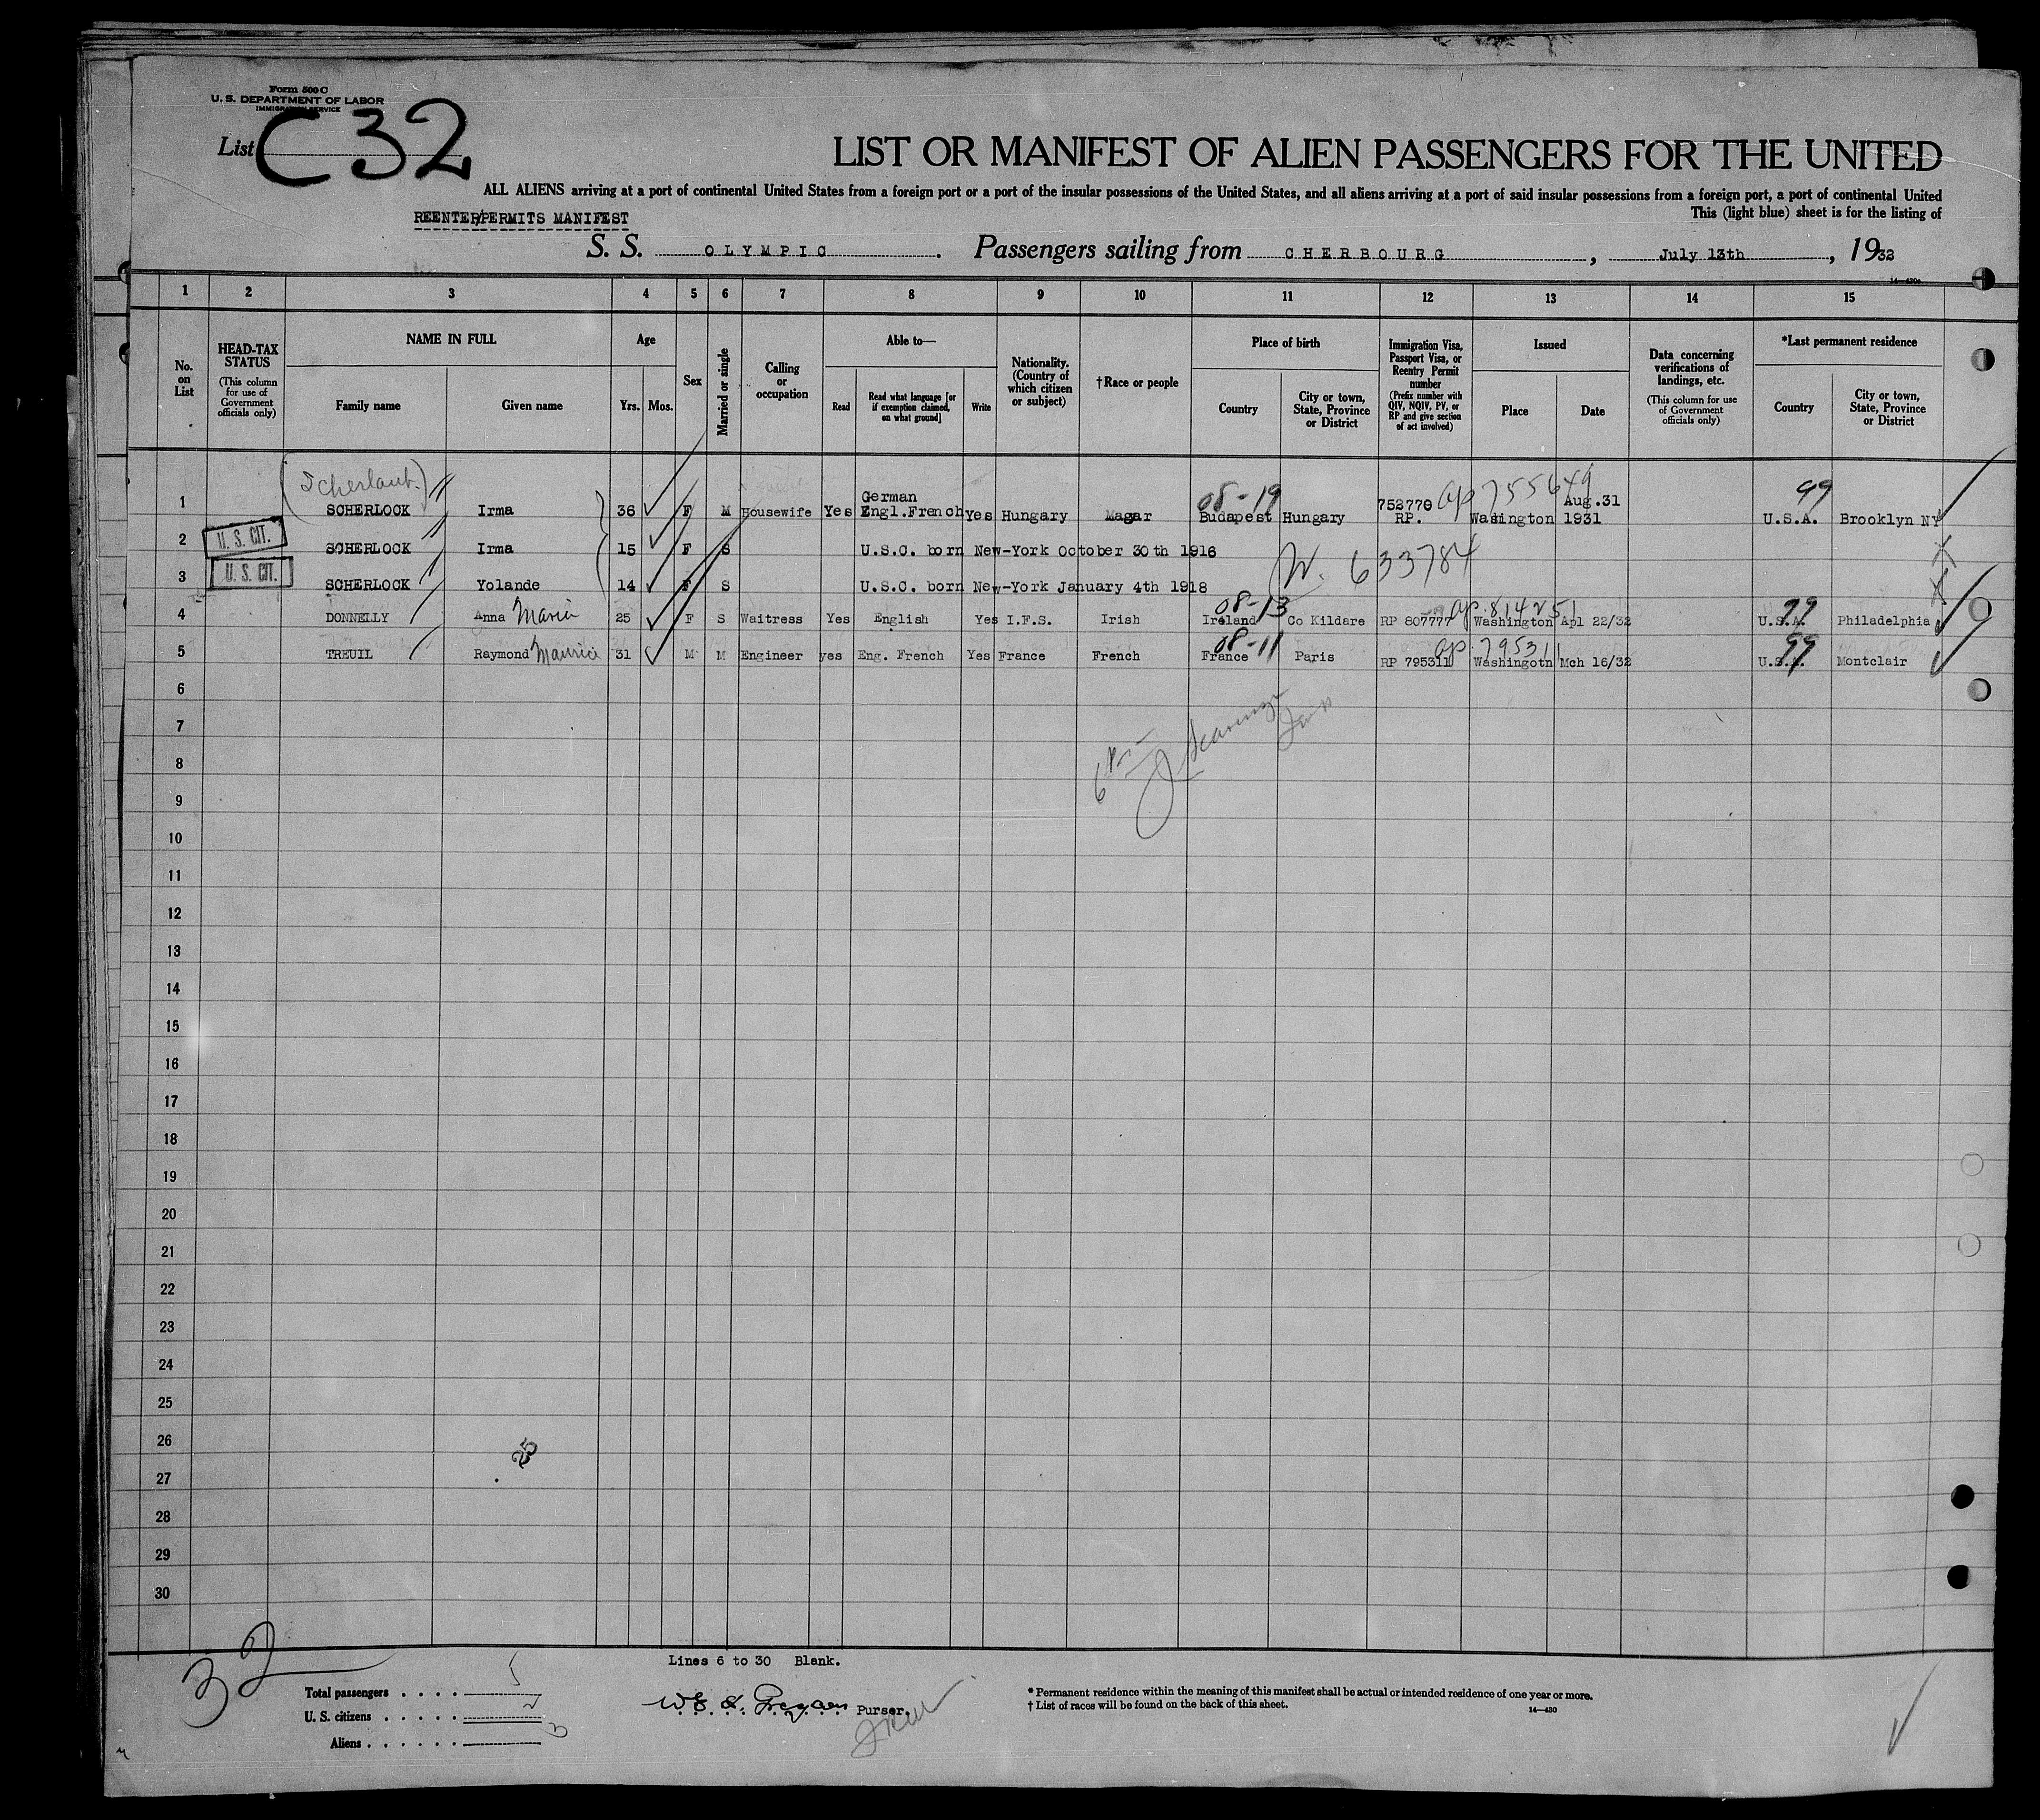 Form 500 C
U. S. DEPARTMENT OF LABOR
IMMIGRATION SERVICE
List C 32
LIST OR MANIFEST OF ALIEN PASSENGERS FOR THE UNITED
ALL ALIENS arriving at a port of continental United States from a foreign port or a port of the insular possessions of the United States, and all aliens arriving at a port of said insular possessions from a foreign port, a port of continental United
This (light blue) sheet is for the listing of
REENTER/PERMITS MANIFEST
S. S. OLYMPIC. Passengers sailing from CHERBOURG, July 13th, 1932
14—430a
1 2 3 4 5 6 7 8 9 10 11 12 13 14 15
No. on List
HEAD-TAX STATUS (This column for use of Government officials only)
NAME IN FULL Family name Given name
Age Yrs. Mos.
Sex
Married or single
Calling or occupation
Able to— Read Read what language [or if exemption claimed, on what ground] Write
Nationality. (Country of which citizen or subject)
†Race or people
Place of birth Country City or town, State, Province or District
Immigration Visa, Passport Visa, or Reentry Permit number (Prefix number with QIV, NQIV, PV, or RP and give section of act involved)
Issued Place Date
Data concerning verifications of landings, etc. (This column for use of Government officials only)
*Last permanent residence Country City or town, State, Province or District
(Scherlaut.) 08-19 ap 755649 99
1 SCHERLOCK Irma 36 F M Housewife Yes German Engl.French Yes Hungary Magar Budapest Hungary 752770 RP. Washington Aug.31 1931 U.S.A. Brooklyn NY
2 U. S. CIT. SCHERLOCK Irma 15 F S U.S.C. born New-York October 30th 1916
W. 633784
3 U. S. CIT. SCHERLOCK Yolande 14 F S U.S.C. born New-York January 4th 1918
08-13 ap. 814251 99
4 DONNELLY Anna Maria 25 F S Waitress Yes English Yes I.F.S. Irish Ireland Co Kildare RP 807777 Washington Apl 22/32 U.S.A. Philadelphia
08-11 ap. 795311 99
5 TREUIL Raymond Maurice 31 M M Engineer yes Eng. French Yes France French France Paris RP 795311 Washingotn Mch 16/32 U.S.A. Montclair
6
7
8
9
10
11
12
13
14
15
16
17
18
19
20
21
22
23
24
25
26
25
27
28
29
30
32
Lines 6 to 30 Blank.
Total passengers . . . . 5
U. S. citizens . . . . . 2
Aliens . . . . . . 3
Purser.
* Permanent residence within the meaning of this manifest shall be actual or intended residence of one year or more.
† List of races will be found on the back of this sheet.
14—430